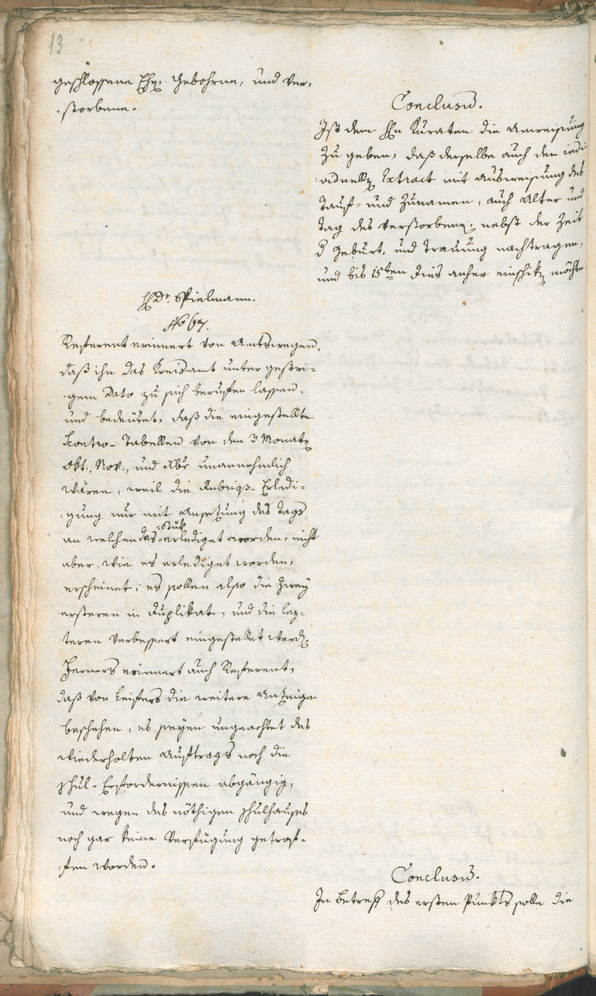 13
geschlossene Ehen, Gebohrne, und Ver-
storbene.
Conclusum.
Ist dem Hn Kuraten die Anweisung
zu geben, daß derselbe auch den indi
viduellen Extract mit Ausweisung des
Tauf- und Zunamen, auch Alter und
Tag des Verstorbenen, nebst der Zeit
d Geburt, und Trauung nachtragen,
und bis 15ten dies anher einschiken möchte
H Dr Spielmann.
No 67.
Referent erinnert von Amtswegen,
daß ihn das Kreisamt unter gestri-
gem Dato zu sich beruffen lassen,
und bedeütet, daß die eingestellte
Tabellen von den 3 Monaten
Okt., Nov., und Xbr unannehmlich
wären, weil die Erledi-
gung nur mit Ansetzung des Tags
an welchen das -stük erlediget worden, nicht
aber, wie es erlediget worden,
erscheinet, es sollen also die zwey
ersteren in Duplikat, und die lez-
teren verbessert eingestellt werden.
Ferners erinnert auch Referent,
daß von Leifers die weitere Anzeige
beschehen, es seyen ungeachtet des
wiederholten Auftrags noch die
Schul-Erfordernissen abgängig,
und wegen des nöthigen Schulhauses
noch gar keine Verfügung getrof-
fen worden.
Conclusum.
In Betreff des ersten Punkts solle die